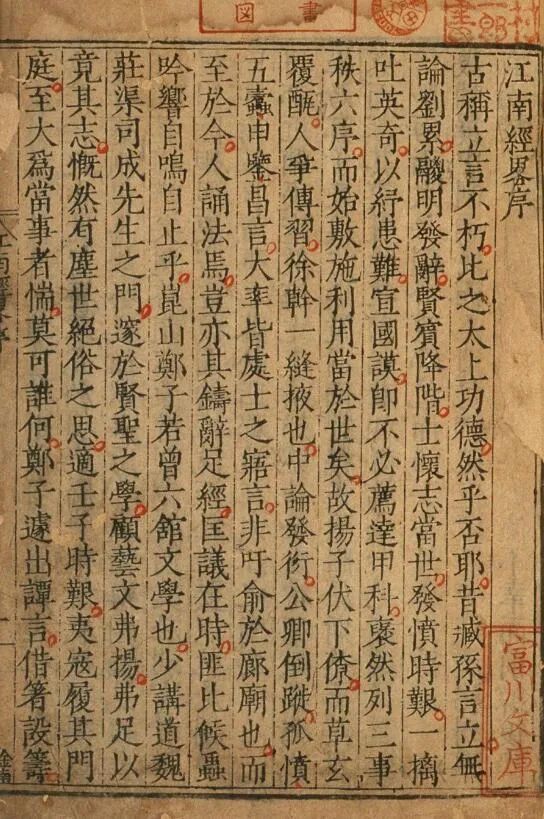 江南經畧序
古稱立言不朽比之太上功德然乎否耶昔臧孫言立無
論劉累鬷明發辭賢賓降階士懷志當世發憤時艱一摛
吐英奇以紓患難宣國謨卽不必薦達甲科褎然列三事
秩六序而始敷施利用當於世矣故揚子伏下僚而草玄
覆醢人爭傳習徐幹一縫掖也中論發衒公卿倒蹤孤憤
五蠹申鑒昌言大率皆處士之寤言非吁俞於廊廟也而
至於今人誦法焉豈亦其鑄辭足經匡議在時匪比候蟲
吟響自鳴自止乎崑山鄭子若曾六館文學也少講道魏
莊渠司成先生之門邃於賢聖之學顧藝文弗揚弗足以
竟其志慨然有塵世絕俗之思適壬子時艱夷寇履其門
庭至大爲當事者惴莫可誰何鄭子遽出譚言借箸設籌
書
圖
富川文庫